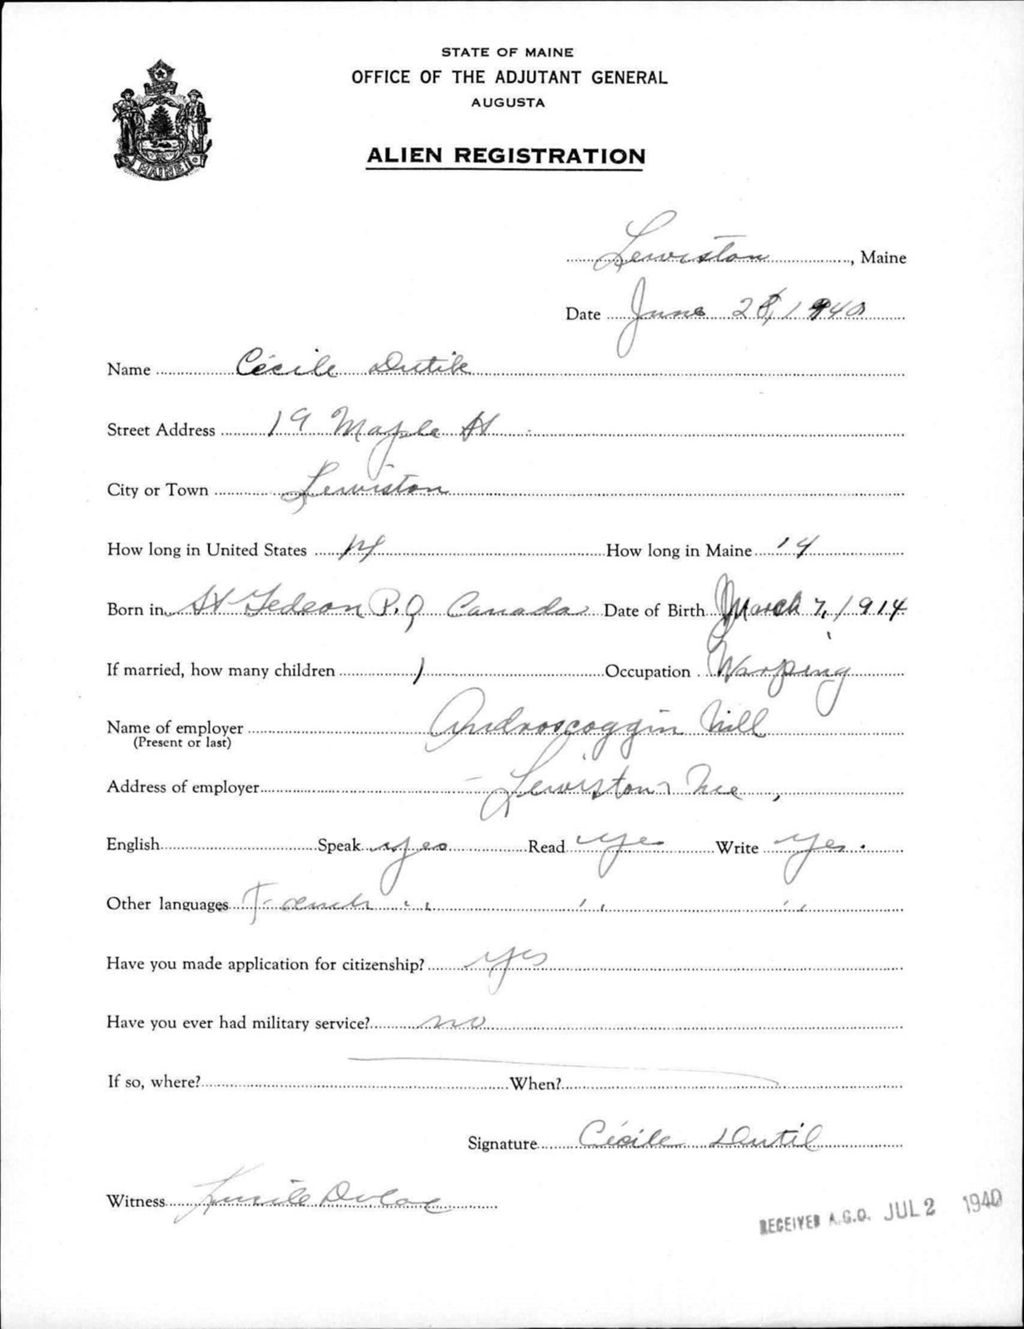 STATE OF MAINE
OFFICE OF THE ADJUTANT GENERAL
AUGUSTA
MAINE
ALIEN REGISTRATION
Lewiston, Maine
Date June 28, 1940
Name Cécile Dutile
Street Address 19 Maple St
City or Town Lewiston
How long in United States 14 How long in Maine 14
Born in St Gedeon P.Q Canada Date of Birth March 7, 1914
If married, how many children 1 Occupation Warping
Name of employer Androscoggin Mill
(Present or last)
Address of employer Lewiston, Me,
English Speak yes Read yes Write yes.
Other languages French " " "
Have you made application for citizenship? yes
Have you ever had military service? no
If so, where? When?
Signature Cécile Dutil
Witness Dulac
RECEIVED A.G.O. JUL 2 1940